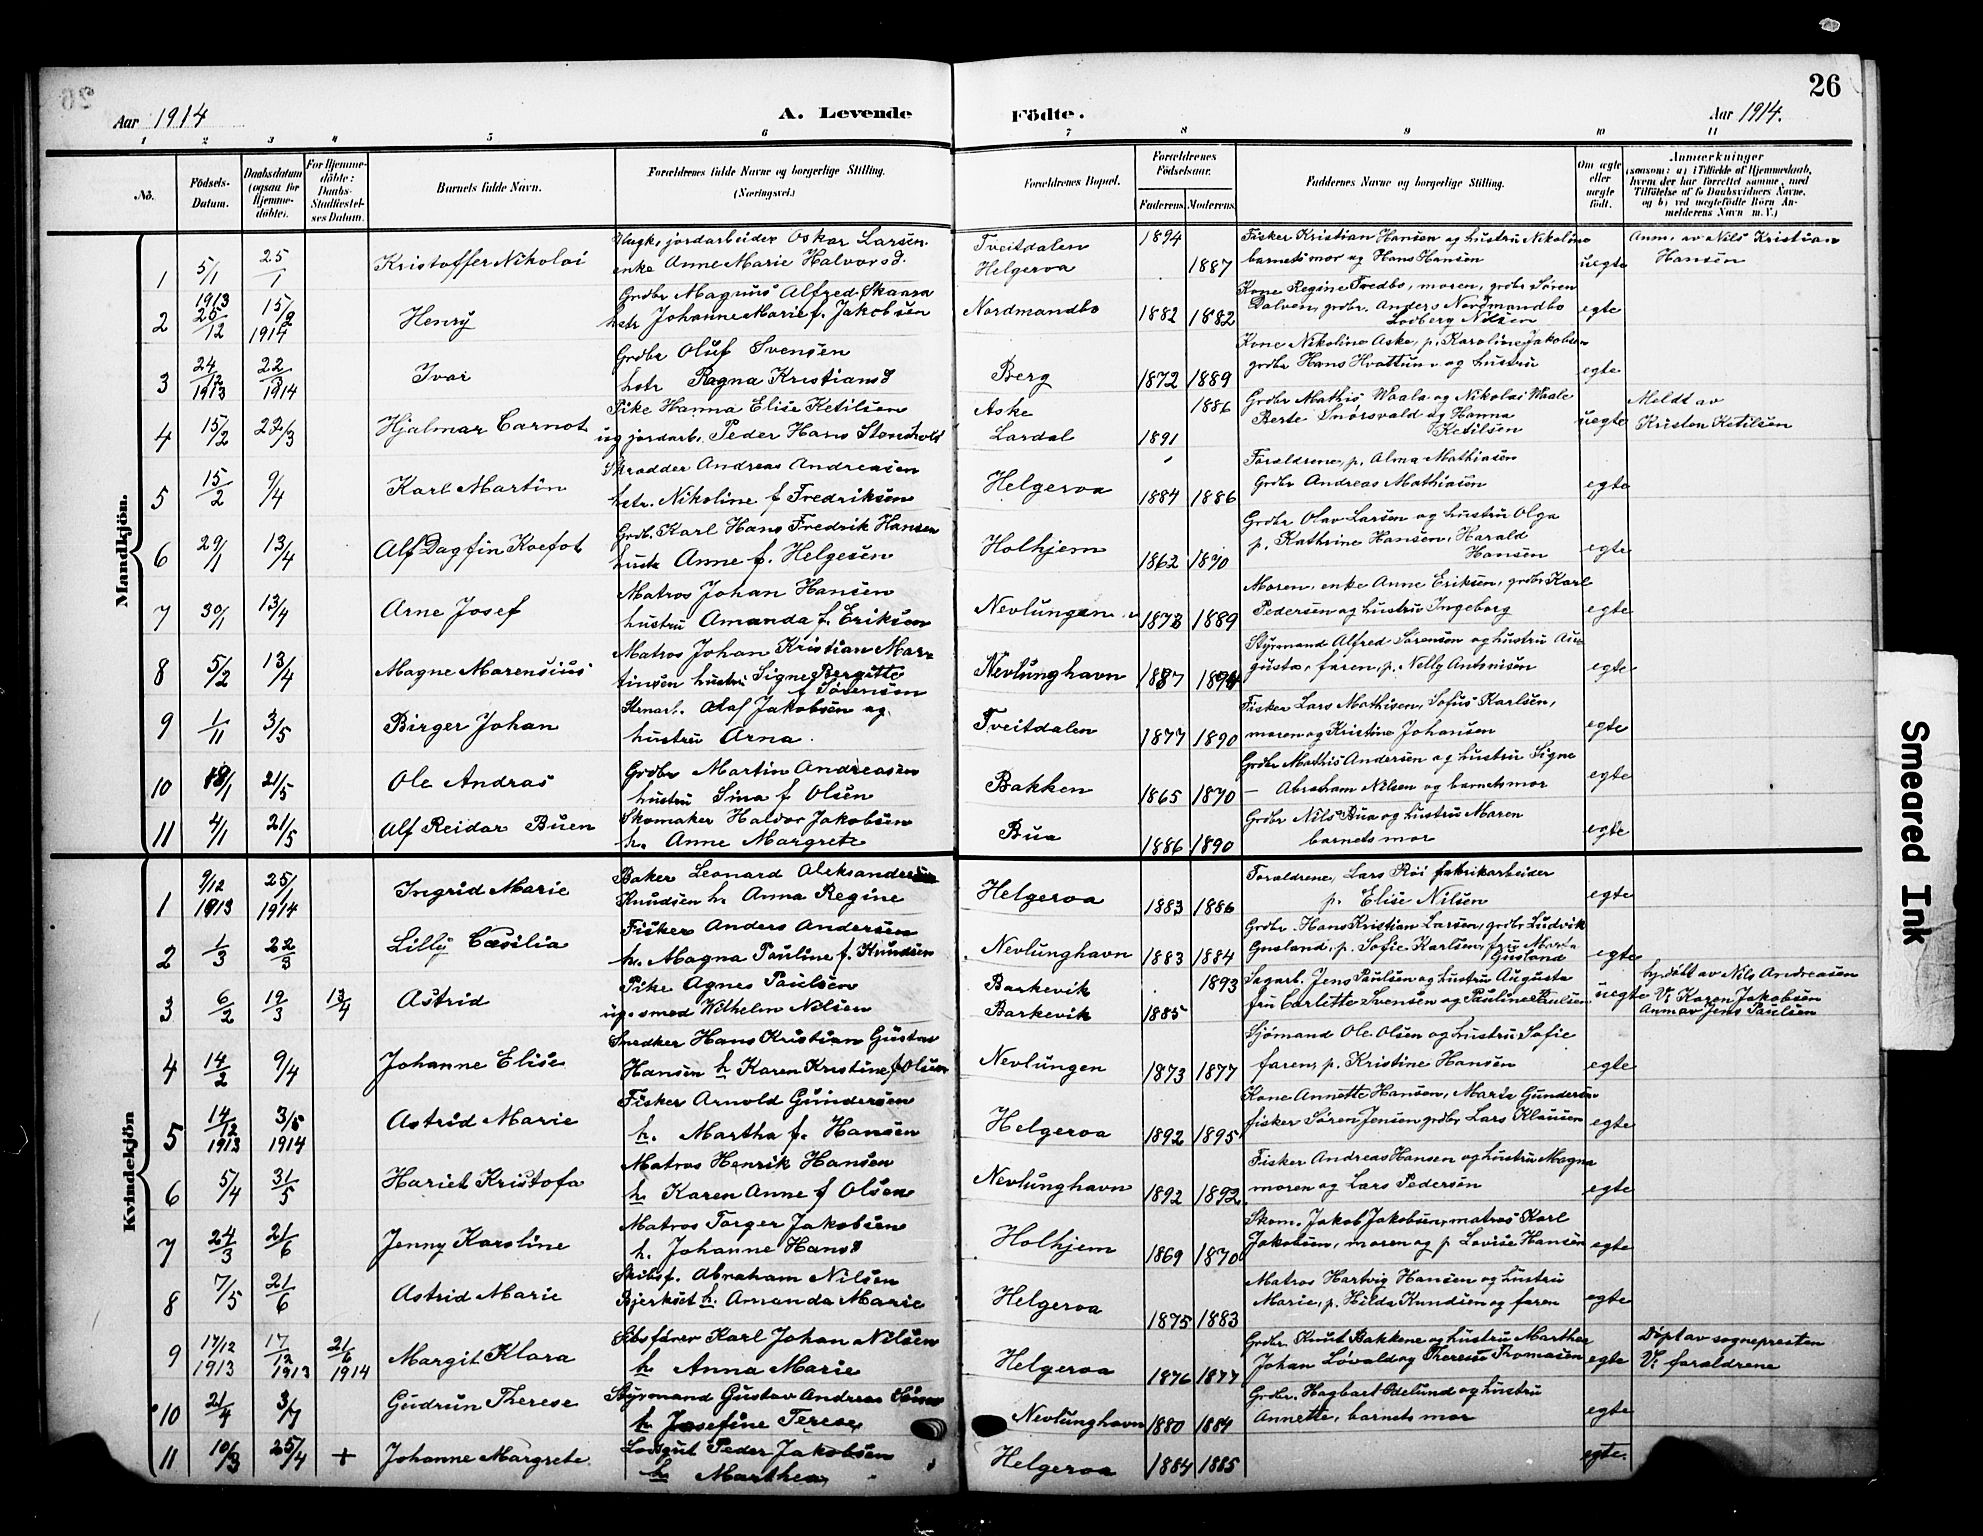 26
Aar 1914
A. Levende
Födte.
Aar 1914.
1 2 3 4 5 6 7 8 9 10 11
No. Födsels-Datum. Daabsdatum (ogsaa for Hjemmedöbte). For Hjemmedöbte: Daabs-Stadfæstelses Datum. Barnets fulde Navn. Forældrenes fulde Navne og borgerlige Stilling. (Næringsvei.) Forældrenes Bopæl. Forældrenes Födselsaar. Faderens. Moderens. Faddernes Navne og borgerlige Stilling. Om ægte eller uægte födt. Anmærkninger (saasom: a) i Tilfælde af Hjemmedaab, hvem der har forrettet samme, med Tilföielse af to Daabsvidners Navne, og b) ved uægtefödte Börn Anmelderens Navn m. V.)
Mandkjön.
1 5/1 25/1 Kristoffer Nikolai Ungk. jordarbeider Oskar Larsen Tveitdalen 1894 Fisker Kristian Hansen og hustru Nikoline uegte Anm. av Nils Kristian
enke Anne Marie Halvorsd. Helgeroa 1887 barnets mor og Hans Hansen Hansen
2 1913 25/12 15/2 1914 Henry Grdbr Magnus Alfred Skaara Nordmandbo 1882 1882 Kone Regine Tredbo, moren, grdbr Søren egte
hstr Johanne Marie f. Jakobsen Dalven, grdbr. Anders Nordmandbo
Lodberg Nilsen
3 24/12 1913 22/3 1914 Ivar Grdbr Oluf Svensen Berg 1872 1889 Kone Nikoline Aske, p. Karoline Jakobsen egte
hstr Ragna Kristiansd grdbr Hans Hvattun og hustru
4 15/2 22/3 Hjalmar Carnot Pike Hanna Elise Ketilsen Aske 1886 Grdbr Mathis Waala og Nikolai Waale uegte Meldt av
ug jordarb. Peder Hans Stenshold Lardal 1891 Berte Snørsvald og Hanna Kristen Ketilsen
Ketilsen
5 15/2 9/4 Karl Martin Skrædder Andreas Andreasen Helgeroa 1884 1886 Forældrene, p. Alma Mathiasen egte
hstr. Nikoline f Fredriksen Grdbr Andreas Mathiasen
6 29/1 13/4 Alf Dagfin Koefot Grdb. Karl Hans Fredrik Hansen Holhjem 1862 1890 Grdbr Olav Larsen og hustru Olga egte
hustr Anne f. Helgesen p. Kathrine Hansen, Harald
Hansen
7 30/1 13/4 Arne Josef Matros Johan Hansen Nevlungen 1873 1889 Moren, enke Anne Eriksen, grdbr Karl egte
hustru Amanda f. Eriksen Pedersen og hustru Ingeborg
8 5/2 13/4 Magne Marensius Matros Johan Kristian Mar- Nevlunghavn 1887 1894 Styrmand Alfred Sørensen og hustru Au- egte
tinsen hustru Signe Bergitte gusta, faren, p. Nelly Antonisen
f Sørensen
9 1/11 3/5 Birger Johan Stenarb. Olaf Jakobsen og Tveitdalen 1877 1890 Fisker Lars Mathisen, Sofus Karlsen, egte
hustru Arna. moren og Kristine Johansen
10 18/1 21/5 Ole Andras Grdbr Martin Andreasen Bakken 1865 1870 Grdbr Mathis Andersen og hustru Signe egte
hustru Sina f Olsen — Abraham Nilsen og barnets mor
11 4/1 21/5 Alf Reidar Buen Skomaker Haldor Jakobsen Bua 1886 1890 Grdbr Nils Bua og hustru Maren egte
h. Anne Margrete barnets mor
Kvindekjön
1 9/12 1913 25/1 1914 Ingrid Marie Baker Leonard Aleksander Helgeroa 1883 1886 Forældrene, Lars Röi fabrikarbeider egte
Knudsen h. Anna Regine p. Elise Nilsen
2 1/3 22/3 Lilly Cæsilia Fisker Anders Andersen Nevlunghavn 1883 1884 Grdbr. Hans Kristian Larsen, grdbr Ludvik egte
h. Magna Pauline f. Knudsen Gusland, p. Sofie Karlsen, fru Marta
Gusland
3 6/2 19/3 13/4 Astrid Pike Agnes Paulsen Barkevik 1893 Sagarb. Jens Paulsen og hustru Augusta uegte hj.døbt av Nils Andreasen
ug. smed Wilhelm Nilsen Barkevik 1885 fru Carlette Svensen og Pauline Paulsen V: Karen Jakobsen
Anm av Jens Paulsen
4 14/2 9/4 Johanne Elise Snedker Hans Kristian Gustav Nevlungen 1873 1877 Sjømand Ole Olsen og hustru Sofie egte
Hansen h Karen Kristine f Olsen faren, p. Kristine Hansen
5 14/12 1913 3/5 1914 Astrid Marie Fisker Arnold Gundersen Helgeroa 1892 1895 Kone Annette Hansen, Marie Gundersen egte
h. Martha f. Hansen fisker Søren Jensen grdbr Lars Klausen
6 5/4 31/5 Hariet Kristofa Matros Henrik Hansen Nevlunghavn 1892 1892 Fisker Andreas Hansen og hustru Magna egte
h. Karen Anne f Olsen moren og Lars Pedersen
7 24/3 21/6 Jenny Karoline Matros Torger Jakobsen Holhjem 1869 1870 Skom. Jakob Jakobsen, matros Karl egte
h. Johanne Hansd Jakobsen, moren og p Lovise Hansen
8 7/5 21/6 Astrid Marie Skibsf. Abraham Nilsen Helgeroa 1875 1883 Matros Hartvig Hansen og hustru egte
Bjerkset h Amanda Marie Marie, p. Hilda Knudsen og faren
9 17/12 1913 17/12 1913 21/6 1914 Margit Klara Skbsfører Karl Johan Nilsen Helgeroa 1876 1877 Grdbr. Knut Bakkene og hustru Marthe egte Døpt av sognepresten
h Anna Marie Johan Løvald og Therese Tromasen V: forældrene
10 21/4 3/7 Gudrun Therese Styrmand Gustav Andreas Nevlunghavn 1880 1884 Grdbr. Hagbart Odelund og hustru egte
h Josefine Terese Annette, barnets mor
11 10/3 25/4 + Johanne Margrete Lodsgut Peder Jakobsen Helgeroa 1884 1885 egte.
h Marthea
Smeared Ink